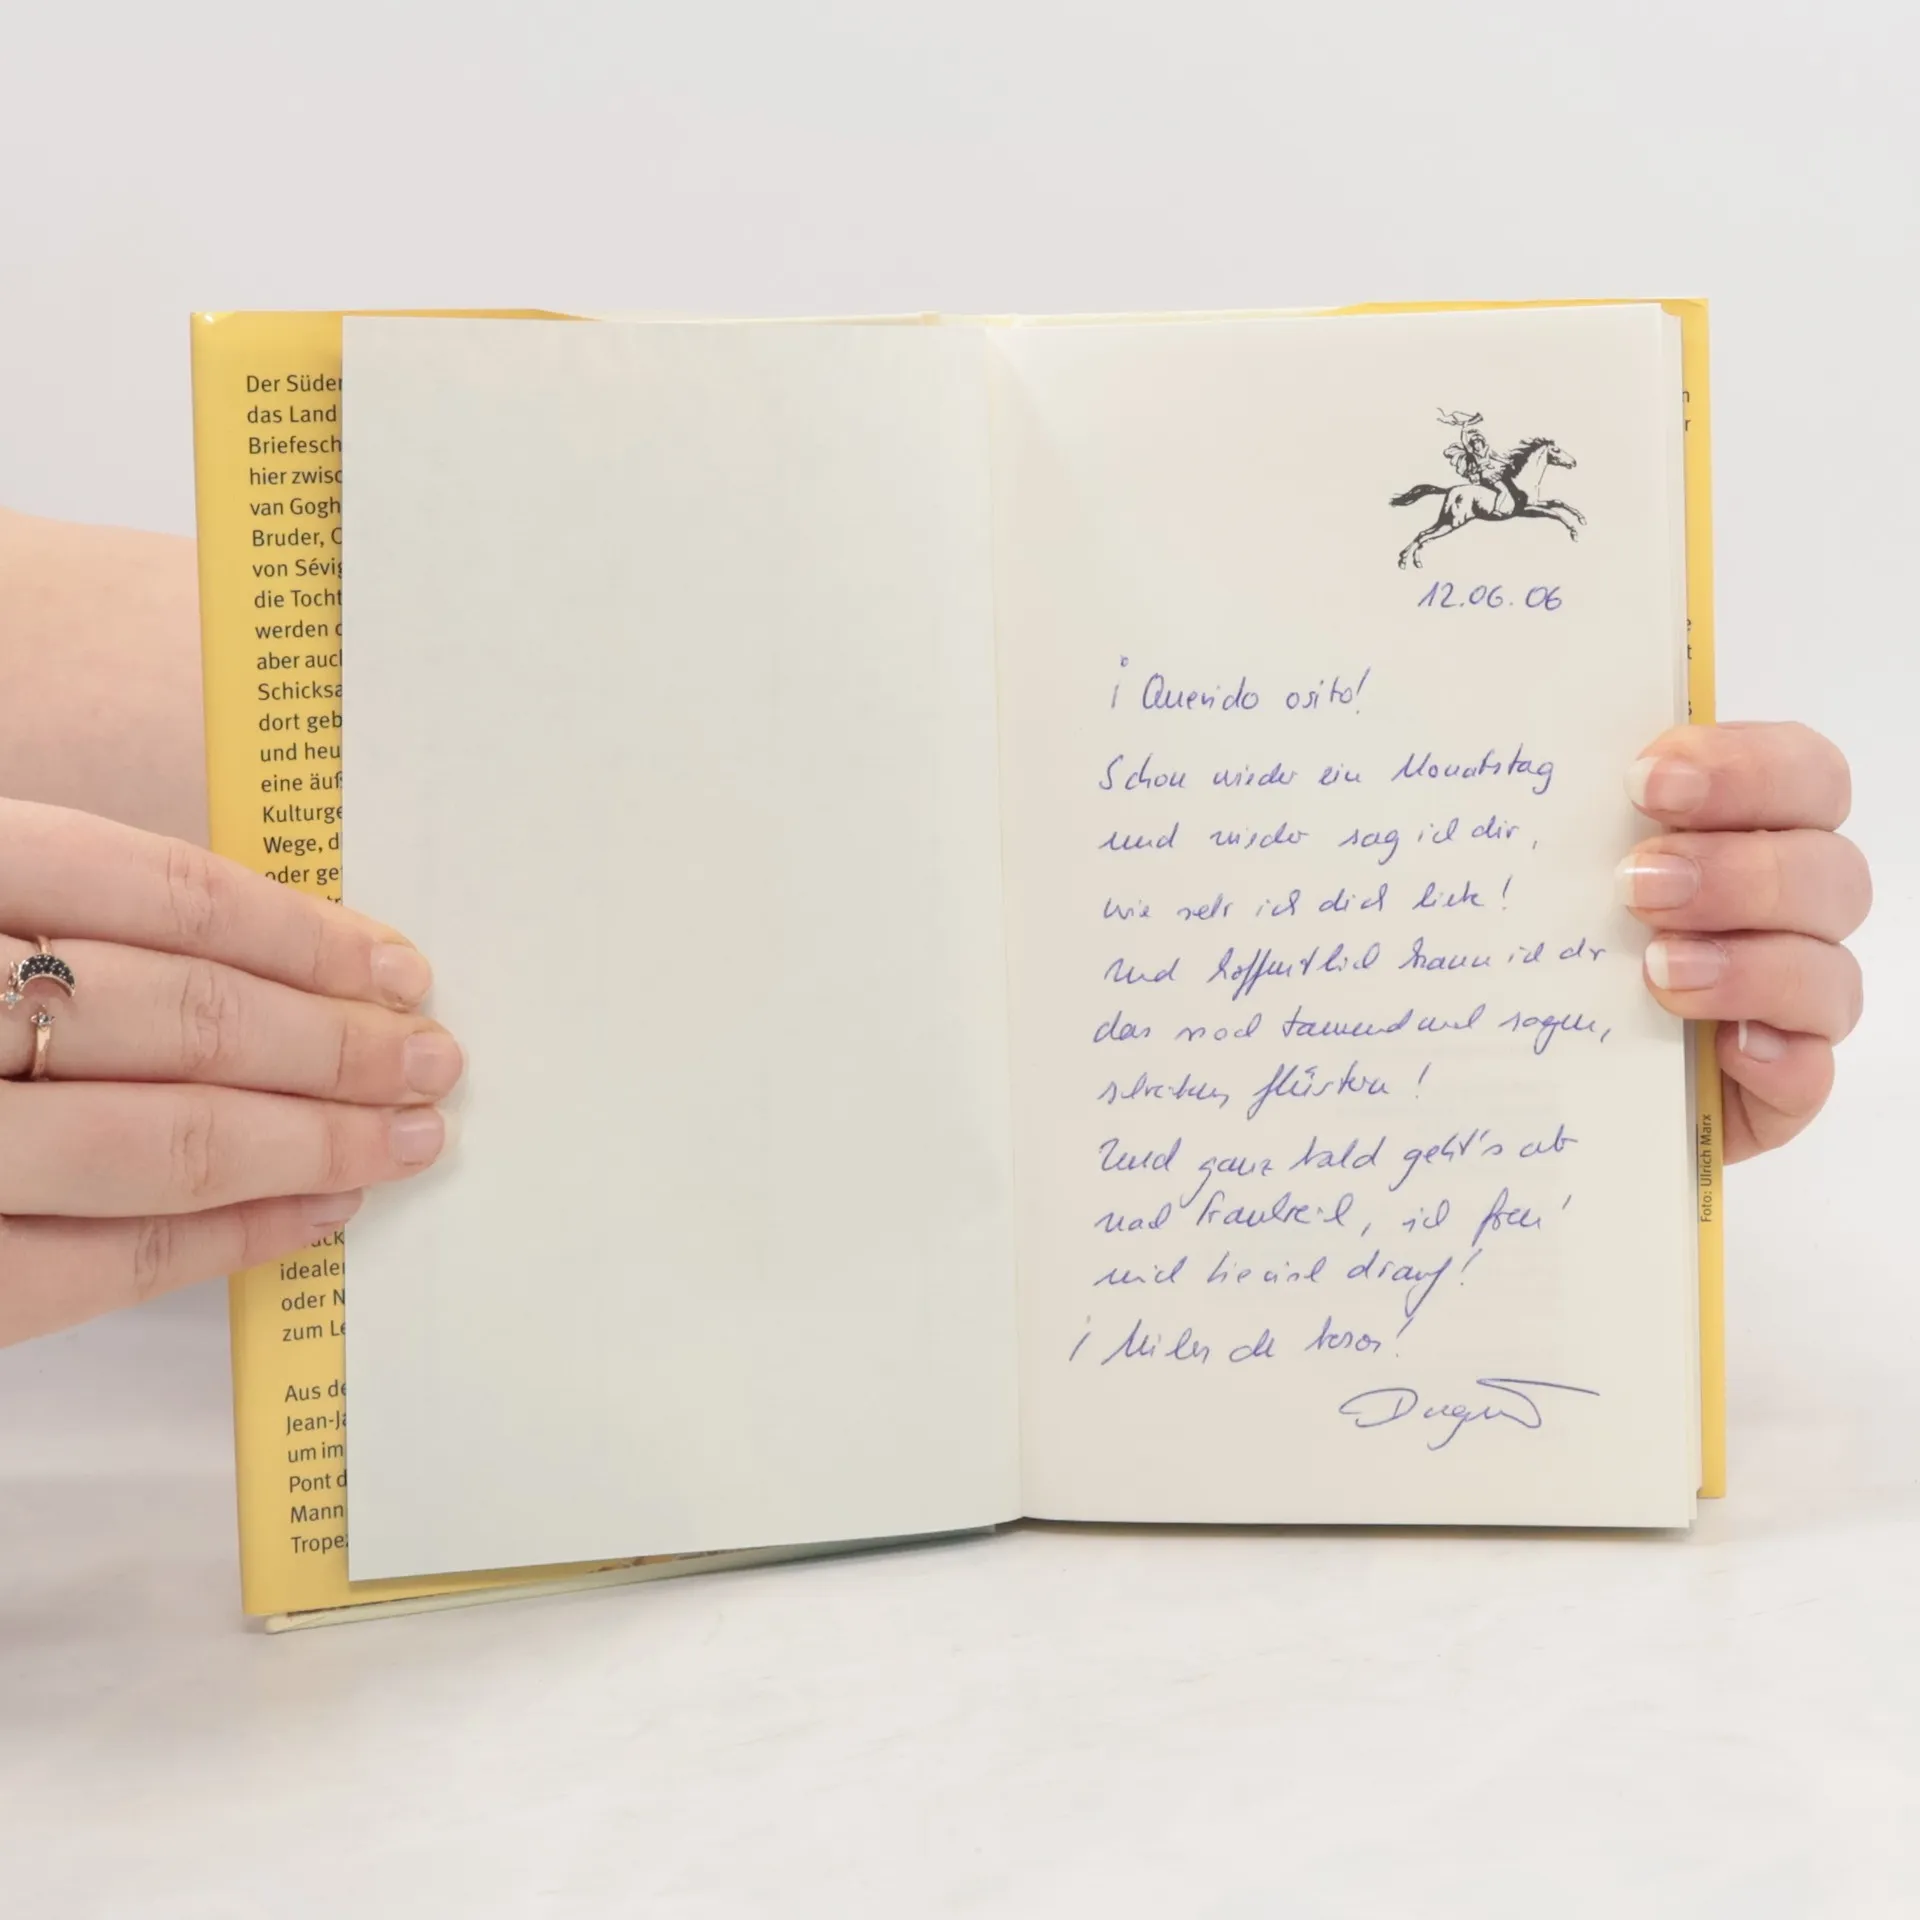 Der Süden
das Land
Briefesch
hier zwisc
van Gogh
Bruder, C
von Sévig
die Tocht
werden d
aber auch
Schicksa
dort geb
und heu
eine äuß
Kulturge
Wege, d
oder ge
ück
idealer
oder N
zum Le
Aus de
Jean-Ja
um im
Pont d
Mann
Tropez
12.06.06
¡Querido osito!
Schon wieder ein Monatstag
und wieder sag ich dir,
wie sehr ich dich liebe!
Und hoffentlich kann ich dir
das noch tausendmal sagen,
schreiben, flüstern!
Und ganz bald geht's ab
nach Frankreich, ich freu'
mich tierisch drauf!
¡Miles de besos!
Foto: Ulrich Marx